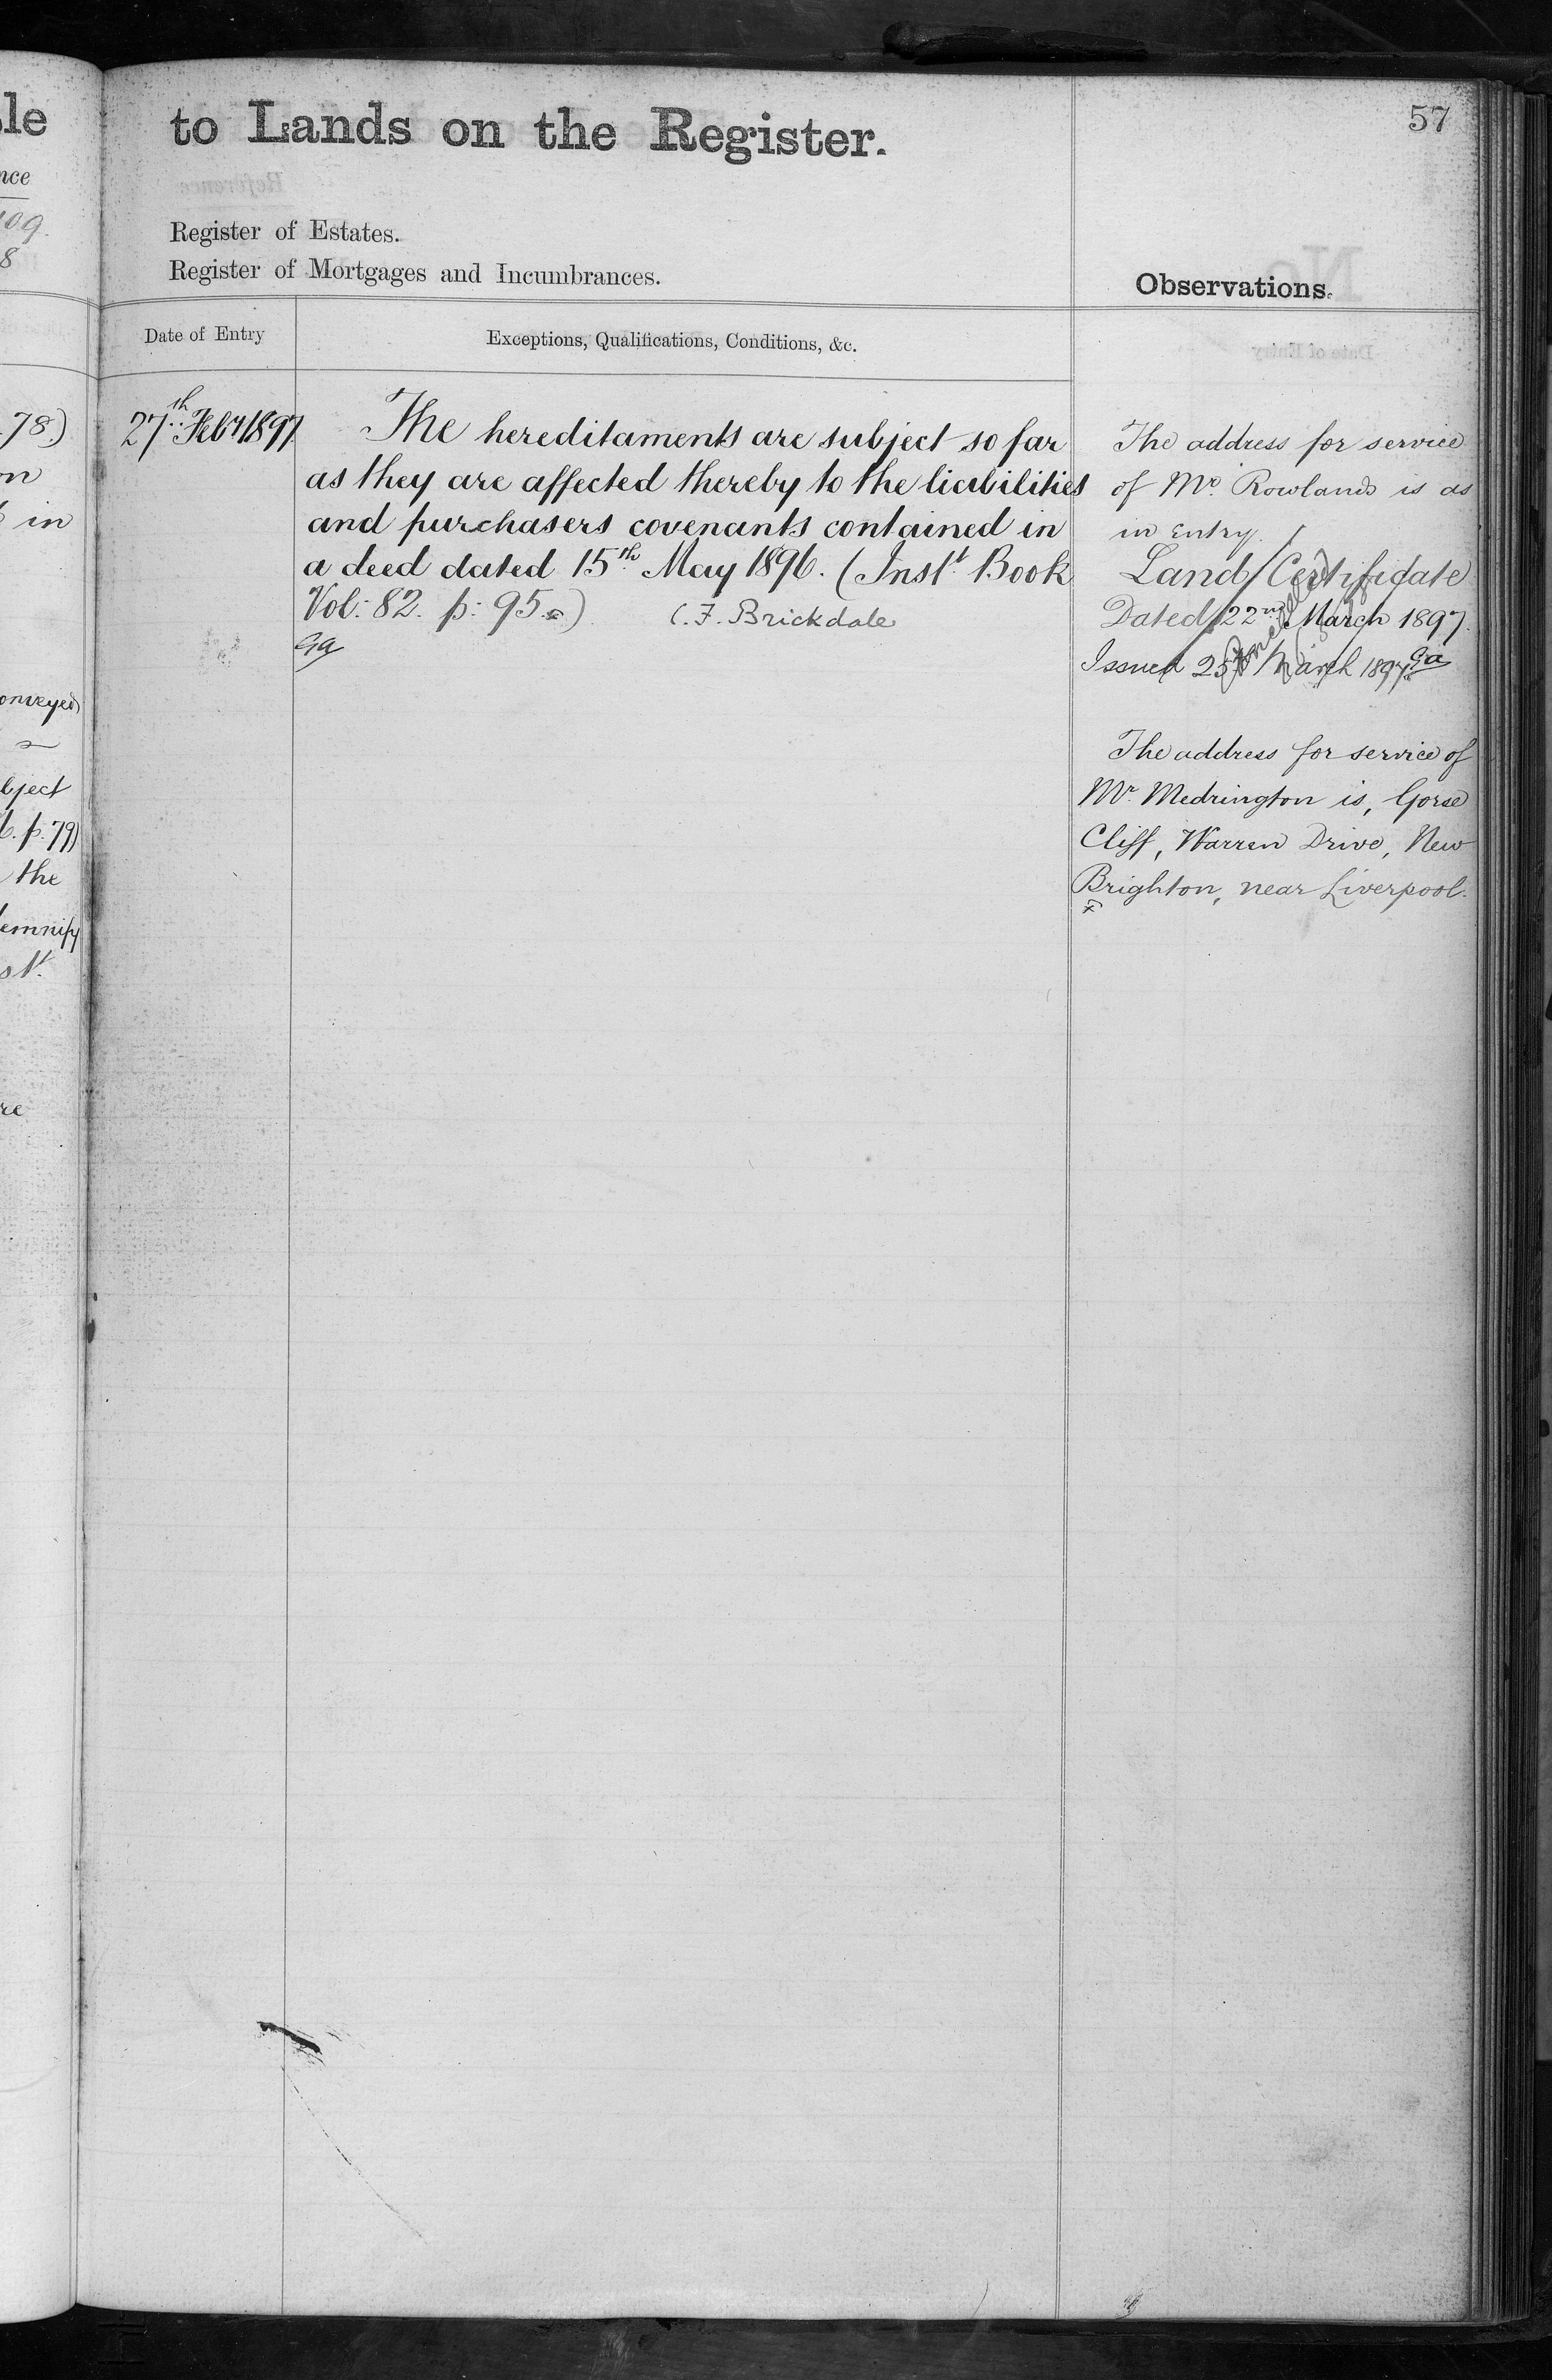 le
nce
109.
8
78.)
on
in
onveyed
bject
6. p. 79)
the
emnify
st.
re
to Lands on the Register.
57
Register of Estates.
Register of Mortgages and Incumbrances.
Observations.
Date of Entry
Exceptions, Qualifications, Conditions, &c.
27th Feby 1897
The hereditaments are subject so far
as they are affected thereby to the liabilities
and purchasers covenants contained in
a deed dated 15th May 1896. (Inst. Book
Vol: 82. p: 95.)
C. F. Brickdale
Ga
The address for service
of Mr. Rowlands is as
in Entry.
Land Certificate
Dated 22nd March 1897.
Issued 25th March 1897. Ga
Cancelled
The address for service of
Mr. Medrington is, Gorse
Cliff, Warren Drive, New
Brighton, near Liverpool.